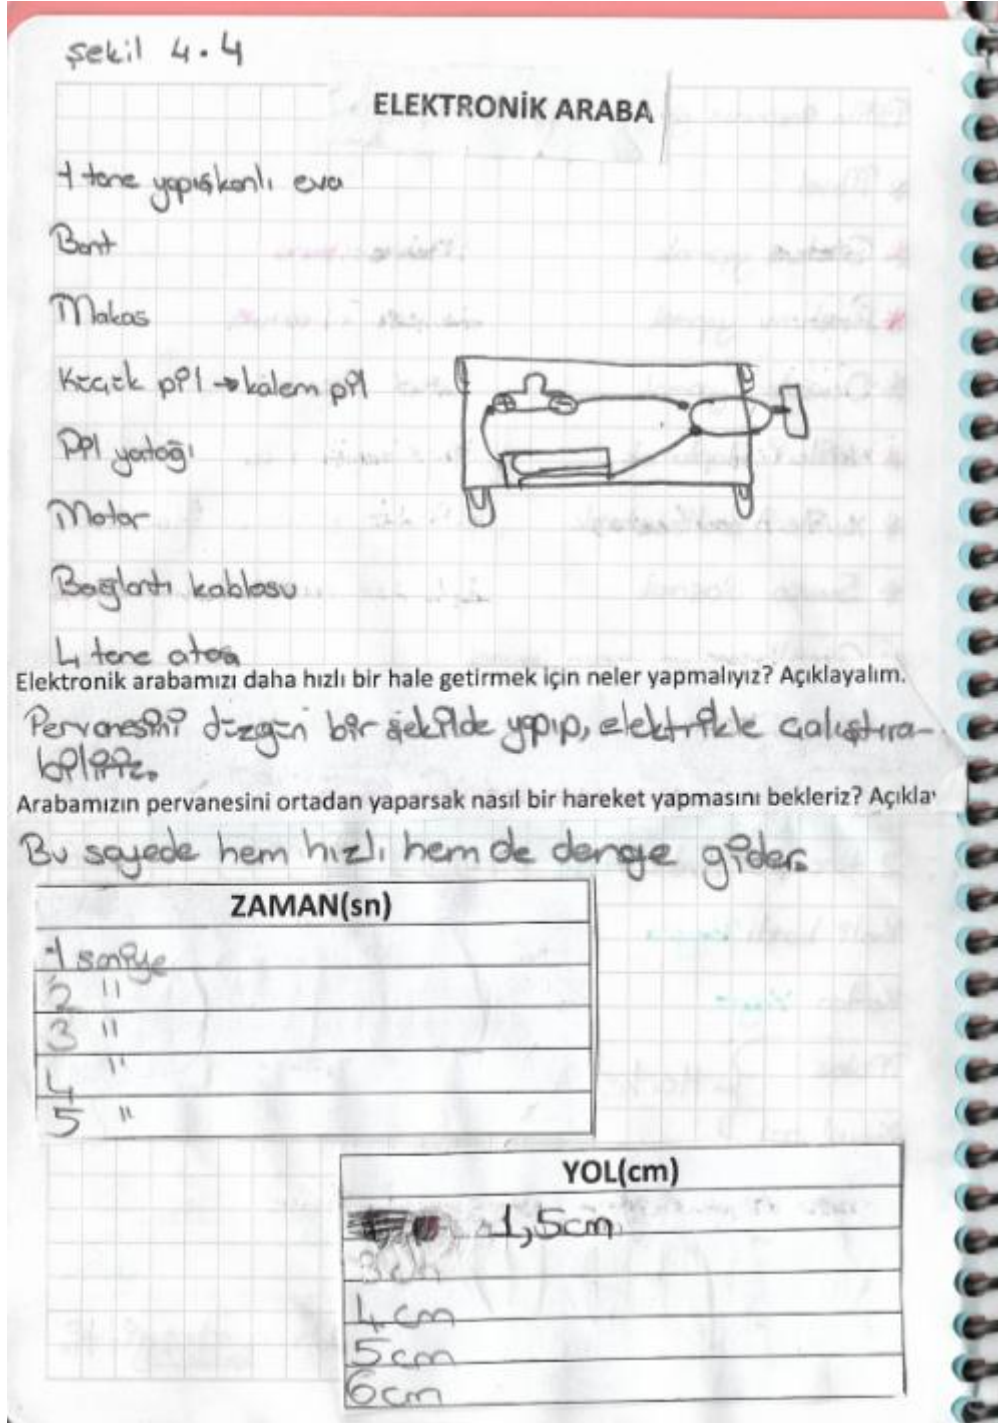 şekil 4.4
ELEKTRONİK ARABA
1 tane yapışkanlı eva
Bant
Makas
Küçük pil → kalem pil
Pil yatağı
Motor
Bağlantı kablosu
4 tane ataş
Elektronik arabamızı daha hızlı bir hale getirmek için neler yapmalıyız? Açıklayalım.
Pervanesini düzgün bir şekilde yapıp, elektrikle çalıştıra-
biliriz.
Arabamızın pervanesini ortadan yaparsak nasıl bir hareket yapmasını bekleriz? Açıkla
Bu sayede hem hızlı hem de denge gider.
ZAMAN(sn)
1 saniye
2 "
3 "
4 "
5 "
YOL(cm)
1,5cm
3cm
4cm
5cm
6cm